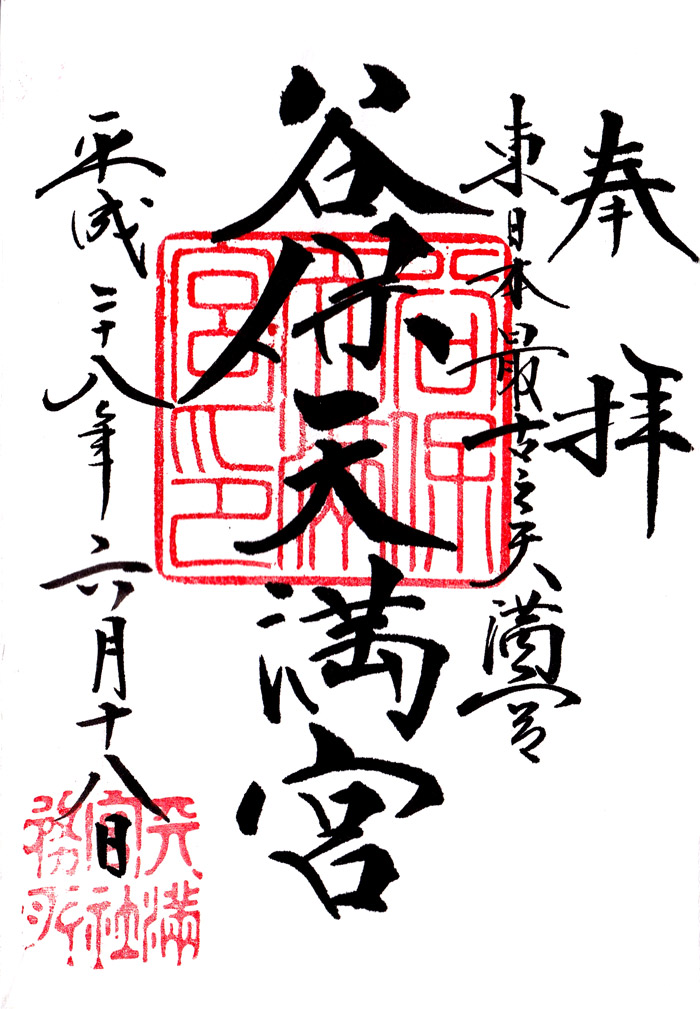 奉拝
東日本最古之天満宮
谷保天満宮
平成二十八年六月十八日
谷保
天満
宮印
天満
宮社
務所